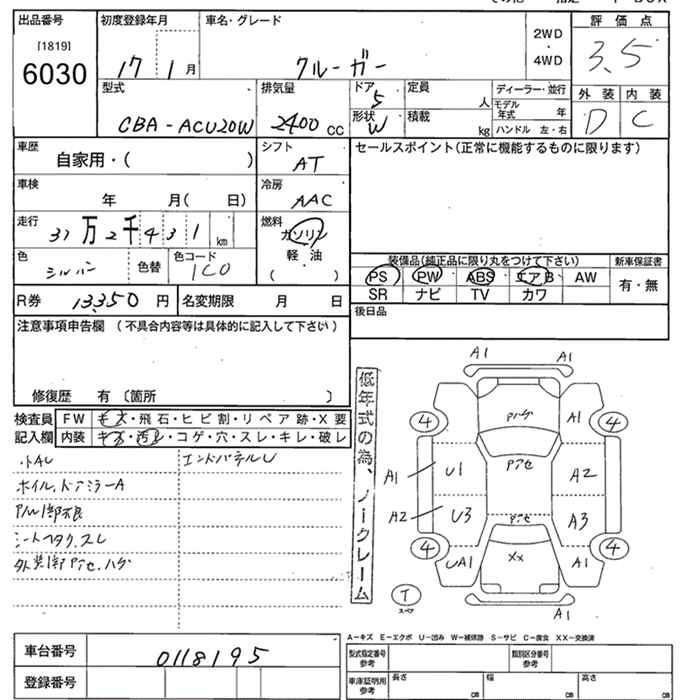 出品番号
[1819]
6030
初度登録年月
17 1 月
車名・グレード
クルーガー
2WD
・
4WD
評価点
3.5
外装 内装
D C
型式
CBA-ACU20W
排気量
2400 cc
ドア
5
形状
W
定員
人
積載
kg
ディーラー・並行
モデル年式 年
ハンドル 左・右
車歴
自家用・( )
シフト
AT
セールスポイント(正常に機能するものに限ります)
車検
年 月( 日)
冷房
AAC
走行
31 万 2 千 4 3 1 km
燃料
ガソリン
軽油
( )
色
シルバー
色替
色コード
1C0
装備品(純正品に限り丸をつけて下さい)
新車保証書
PS PW ABS エアB AW
SR ナビ TV カワ
有・無
R券 13,350 円
名変期限 月 日
後日品
注意事項申告欄 (不具合内容等は具体的に記入して下さい)
修復歴 有〔箇所 〕
検査員
記入欄
FW キズ・飛石・ヒビ割・リペア跡・X要
内装 キズ・汚レ・コゲ・穴・スレ・キレ・破レ
小AU
エンドパネルU
ホイル、ドアミラーA
シートヘタク、スレ
低年式の為、ノークレーム
A1 A1
アハゲ
A1
4 4
U1
アセ
A2
A1
A2
U3
アセ
A3
4 4
UA1
XX
A1
A1
T
スペア
A-キズ E-エクボ U-凹み W-補修跡 S-サビ C-腐食 XX-交換済
車台番号
0118195
登録番号
型式指定番号
参考
類別区分番号
参考
車庫証明用
参考
長さ cm
幅 cm
高さ cm